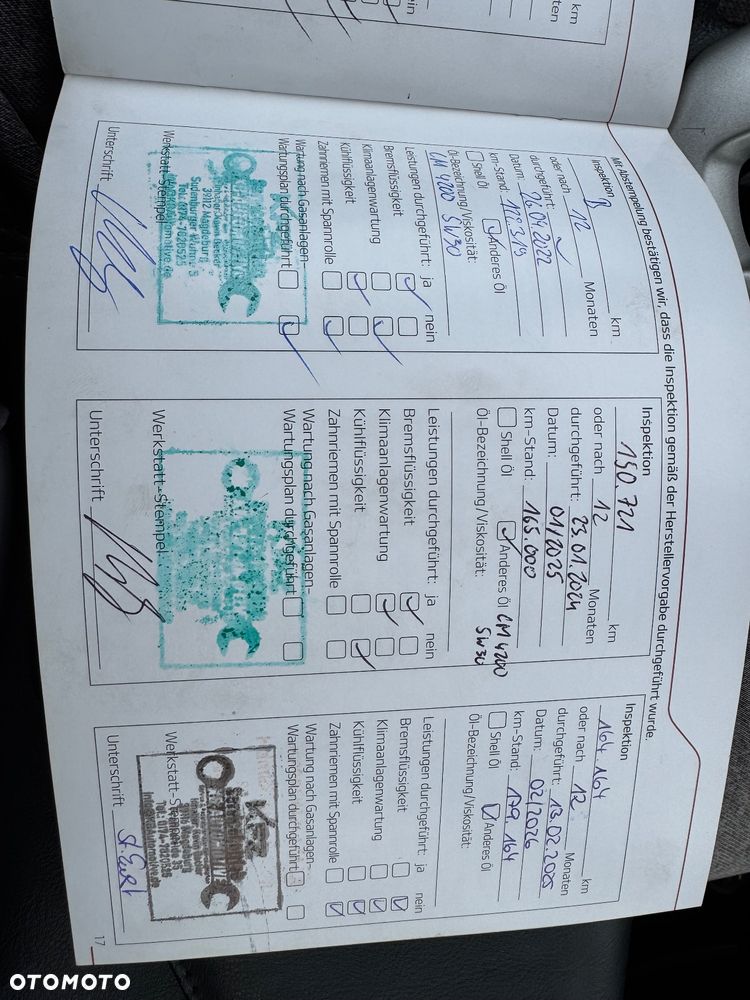 km
Monaten
ein
Mit Abstempelung bestätigen wir, dass die Inspektion gemäß der Herstellervorgabe durchgeführt wurde.
Inspektion
km
oder nach 12 Monaten
durchgeführt:
Datum: 06.09.2022
km-Stand:
Shell Öl Anderes Öl
Öl-Bezeichnung/Viskosität:
CM 4200 5W30
Leistungen durchgeführt: ja nein
Bremsflüssigkeit
Klimaanlagenwartung
Kühlflüssigkeit
Zahnriemen mit Spannrolle
Wartung nach Gasanlagen-
Wartungsplan durchgeführt
Werkstatt-Stempel
39112 Magdeburg
Unterschrift
Inspektion
150.721 km
oder nach 12 Monaten
durchgeführt: 23.01.2024
Datum: 01/2025
km-Stand: 165.000
Shell Öl Anderes Öl CM 4200
Öl-Bezeichnung/Viskosität: 5W30
Leistungen durchgeführt: ja nein
Bremsflüssigkeit
Klimaanlagenwartung
Kühlflüssigkeit
Zahnriemen mit Spannrolle
Wartung nach Gasanlagen-
Wartungsplan durchgeführt
Werkstatt-Stempel
Unterschrift
Inspektion
164.164 km
oder nach 12 Monaten
durchgeführt: 13.02.2025
Datum: 02/2026
km-Stand: 179.164
Shell Öl Anderes Öl
Öl-Bezeichnung/Viskosität:
Leistungen durchgeführt: ja nein
Bremsflüssigkeit
Klimaanlagenwartung
Kühlflüssigkeit
Zahnriemen mit Spannrolle
Wartung nach Gasanlagen-
Wartungsplan durchgeführt
Werkstatt-Stempel
Unterschrift
17
OTOMOTO